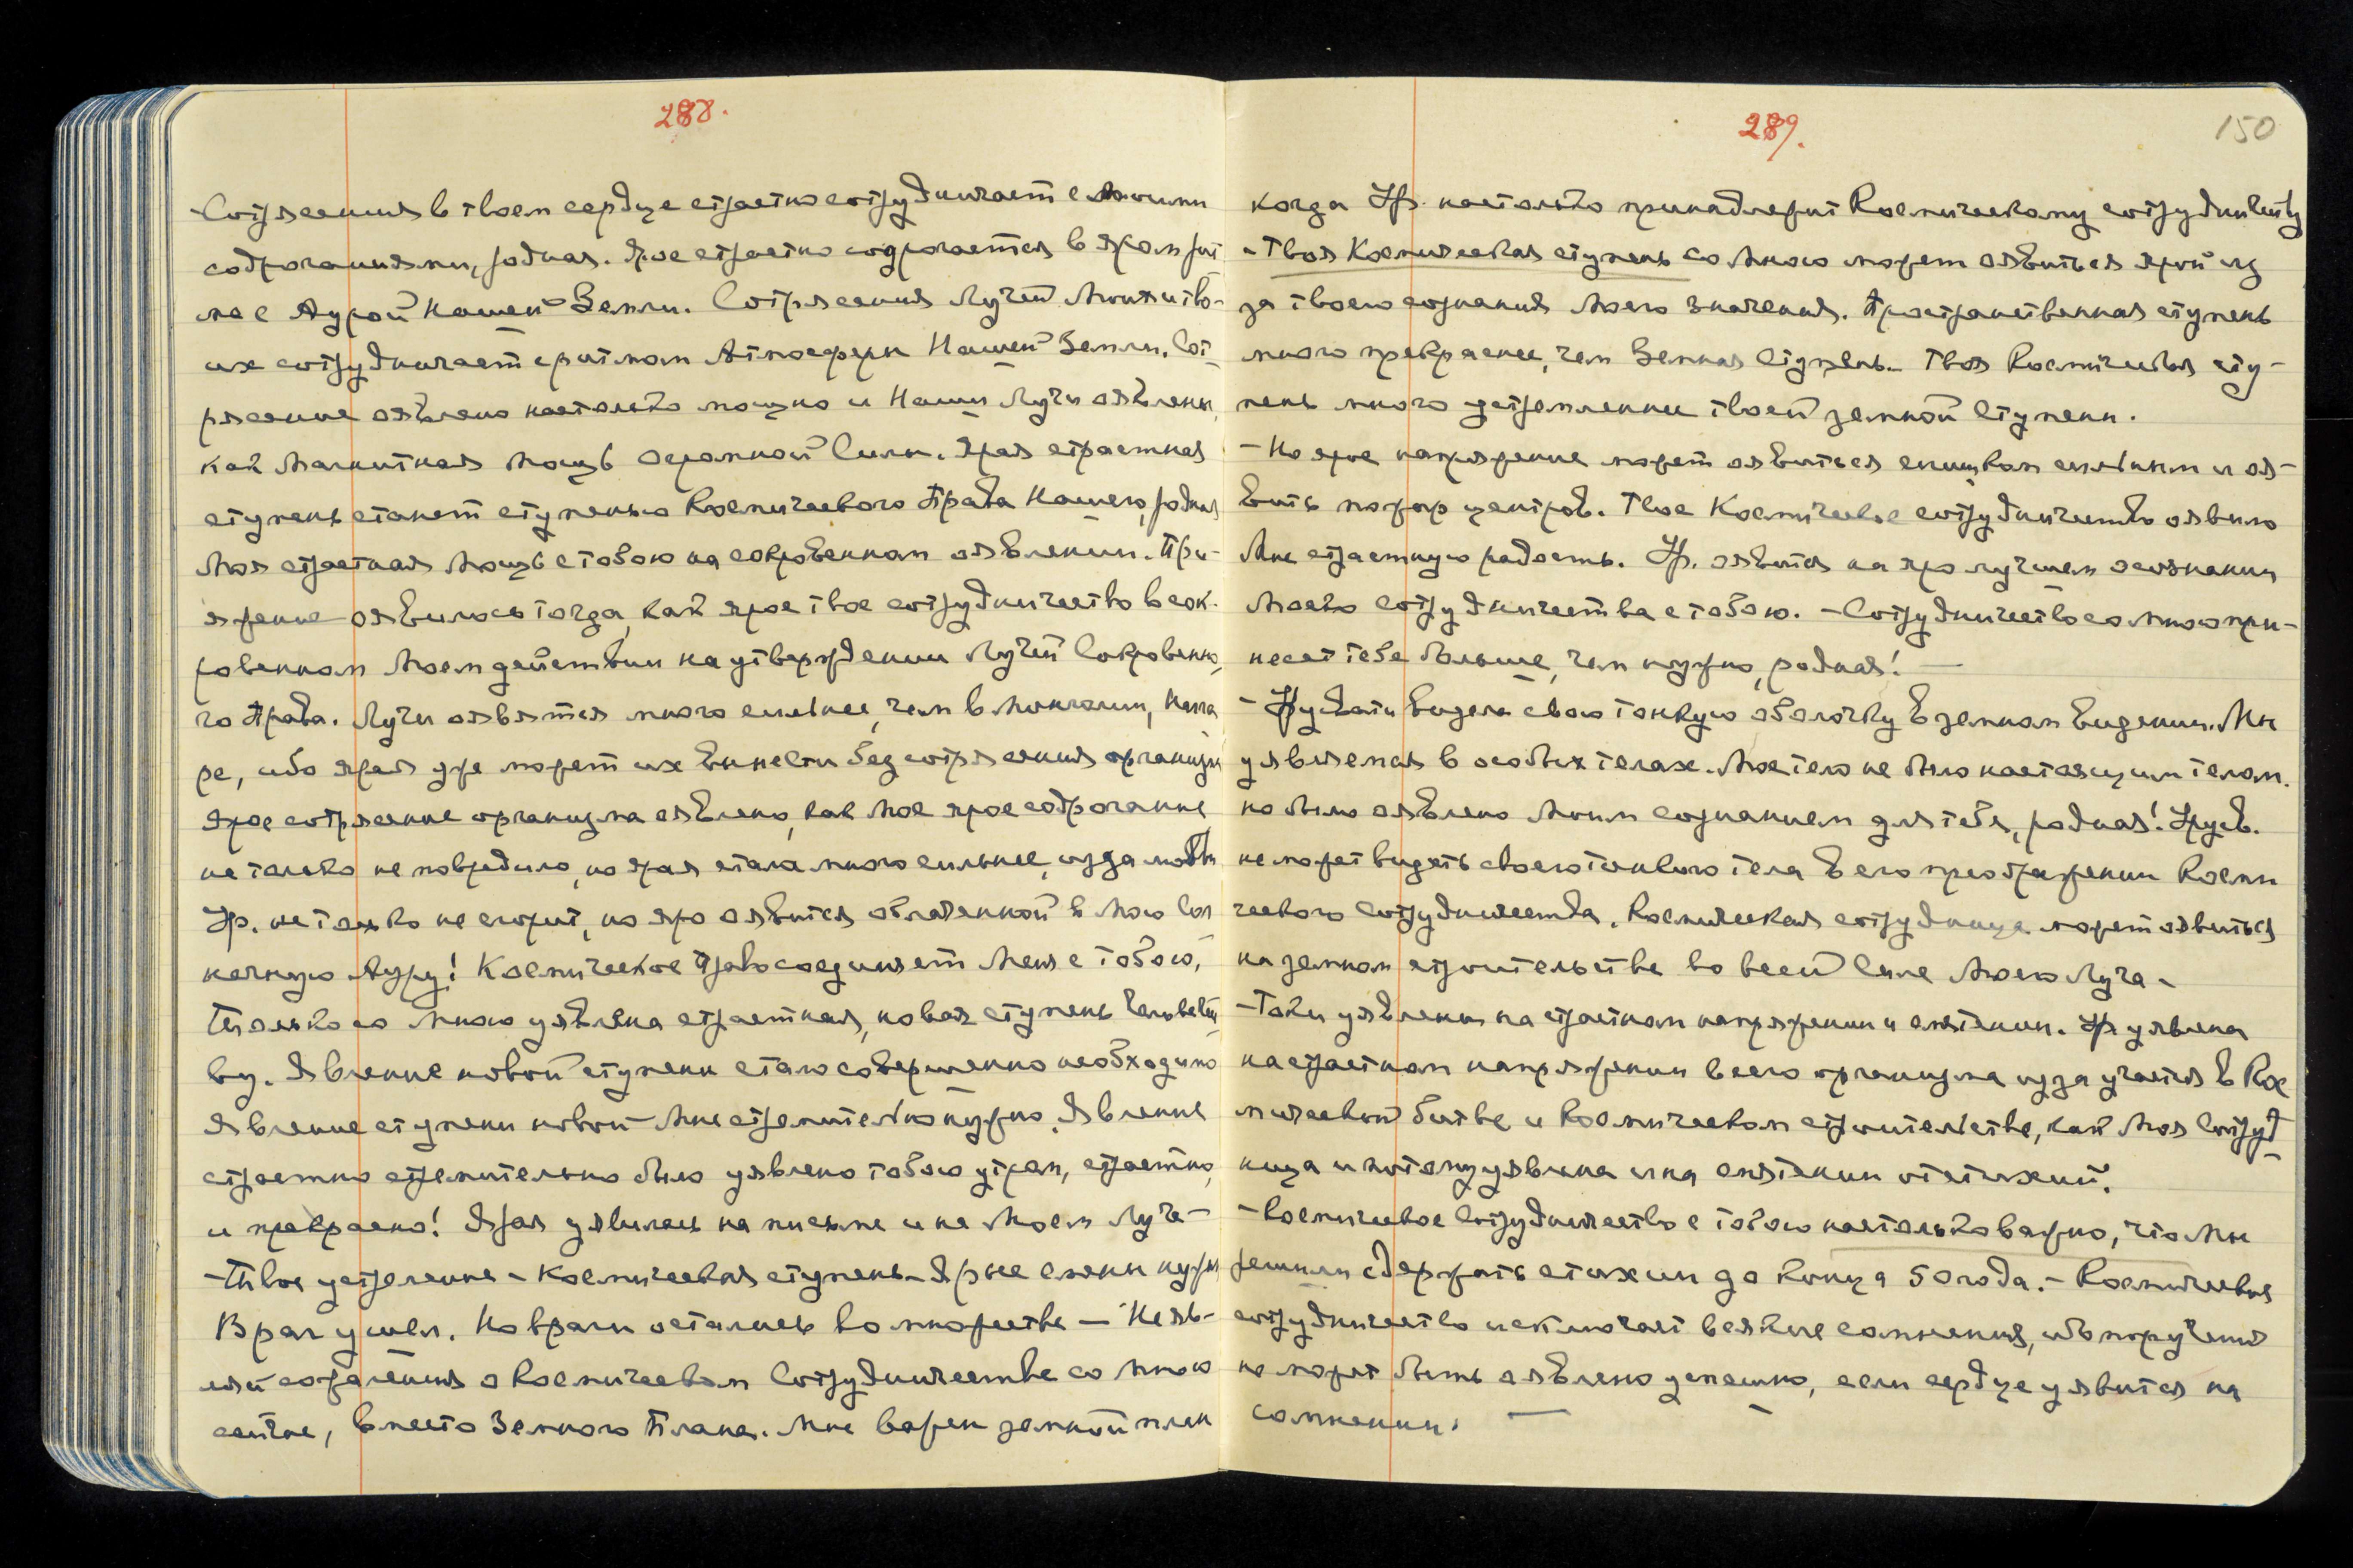 288.
Сотрясения в твоем сердце страстно сотрудничает с Моими
содроганиями, родная. Ярое страстно содрогается в яром рит
ме с Аурой Нашей Земли. Сотрясения Лучей Моих и тво-
их сотрудничает с ритмом Атмосферы Нашей Земли. Сот
рясение оявлено настолько мощно и Наши Лучи оявлены,
как Магнитная Мощь огромной Силы. Ярая страстная
ступень станет ступенью Космического Права Нашего, родная
Моя страстная Мощь с тобою на сокровенном оявлении. При-
яжение оявилось тогда, как ярое твое сотрудничество в сок-
ровенном Моем действии на утверждении Лучей Сокровенно-
го Права. Лучи оявятся много сильнее, чем в Монголии,
ре, ибо ярая уже может их вынести без сотрясения организм
Ярое сотрясение организма оявлено, как Мое ярое содрогание
не только не повредило, но ярая стала много сильнее, из за мощи
Ур. не только не сгорит, но яро оявится облаченной в Мою Сол
нечную Ауру! Космическое Право соединяет Меня с Тобою,
Только со Мною уявлена страстная, новая ступень Человечест
ву. Явление новой ступени стало совершенно необходимо
Явление ступени новой Мне стремительно нужно. Явление
страстно стремительно было уявлено тобою утром, страстно,
и прекрасно! Ярая уявилась на письме и на Моем Луче-
-Твое устремление - Космическая ступень - Ярые смены нужн
Враг ушел. Но враги остались во множестве — Не яв-
ляй сожаления о Космическом Сотрудничестве со Мною
сейчас, вместо Земного Плана. Мне важен земной план
289.
150
когда Ур. настолько принадлежит Космическому сотрудничеству
- Твоя Космическая ступень со Мною может оявиться ярой из
за твоего сознания Моего Значения. Пространственная ступень
много прекраснее, чем Земная Ступень. Твоя Космическая сту-
пень много устремленнее твоей земной Ступени.
- Но ярое напряжение может оявиться слишком сильным и оя-
вить пожар центров. Твое Космическое сотрудничество оявило
Мне страстную радость. Ур. оявится на яро лучшем осознании
Моего сотрудничества с тобою. - Сотрудничество со Мною при-
несет тебе больше, чем нужно, родная! —
- Урусвати видела свою тонкую оболочку в земном видении. Мы
уявляемся в особых телах. Мое тело не было настоящим телом.
но было оявлено Моим сознанием для тебя, родная! Урусв.
не может видеть своего тонкого тела в его преображении Косми
ческого сотрудничества. Космическая сотрудница может оявиться
на земном строительстве во всей Силе Моего Луча -
- Токи уявлены на страстном напряжении и смятении. Ур уявлена
на страстном напряжении всего организма из за участия в Кос
мической битве и Космическом строительстве, как Моя Сотруд
ница и потому уявлена и на смятении от стихий.
- Космическое Сотрудничество с тобою настолько важно, что Мы
решили сдержать стихии до конца 50 года. - Космическое
сотрудничество исключает всякие сомнения, ибо поручения
не может быть оявлено успешно, если сердце уявится на
сомнении. —